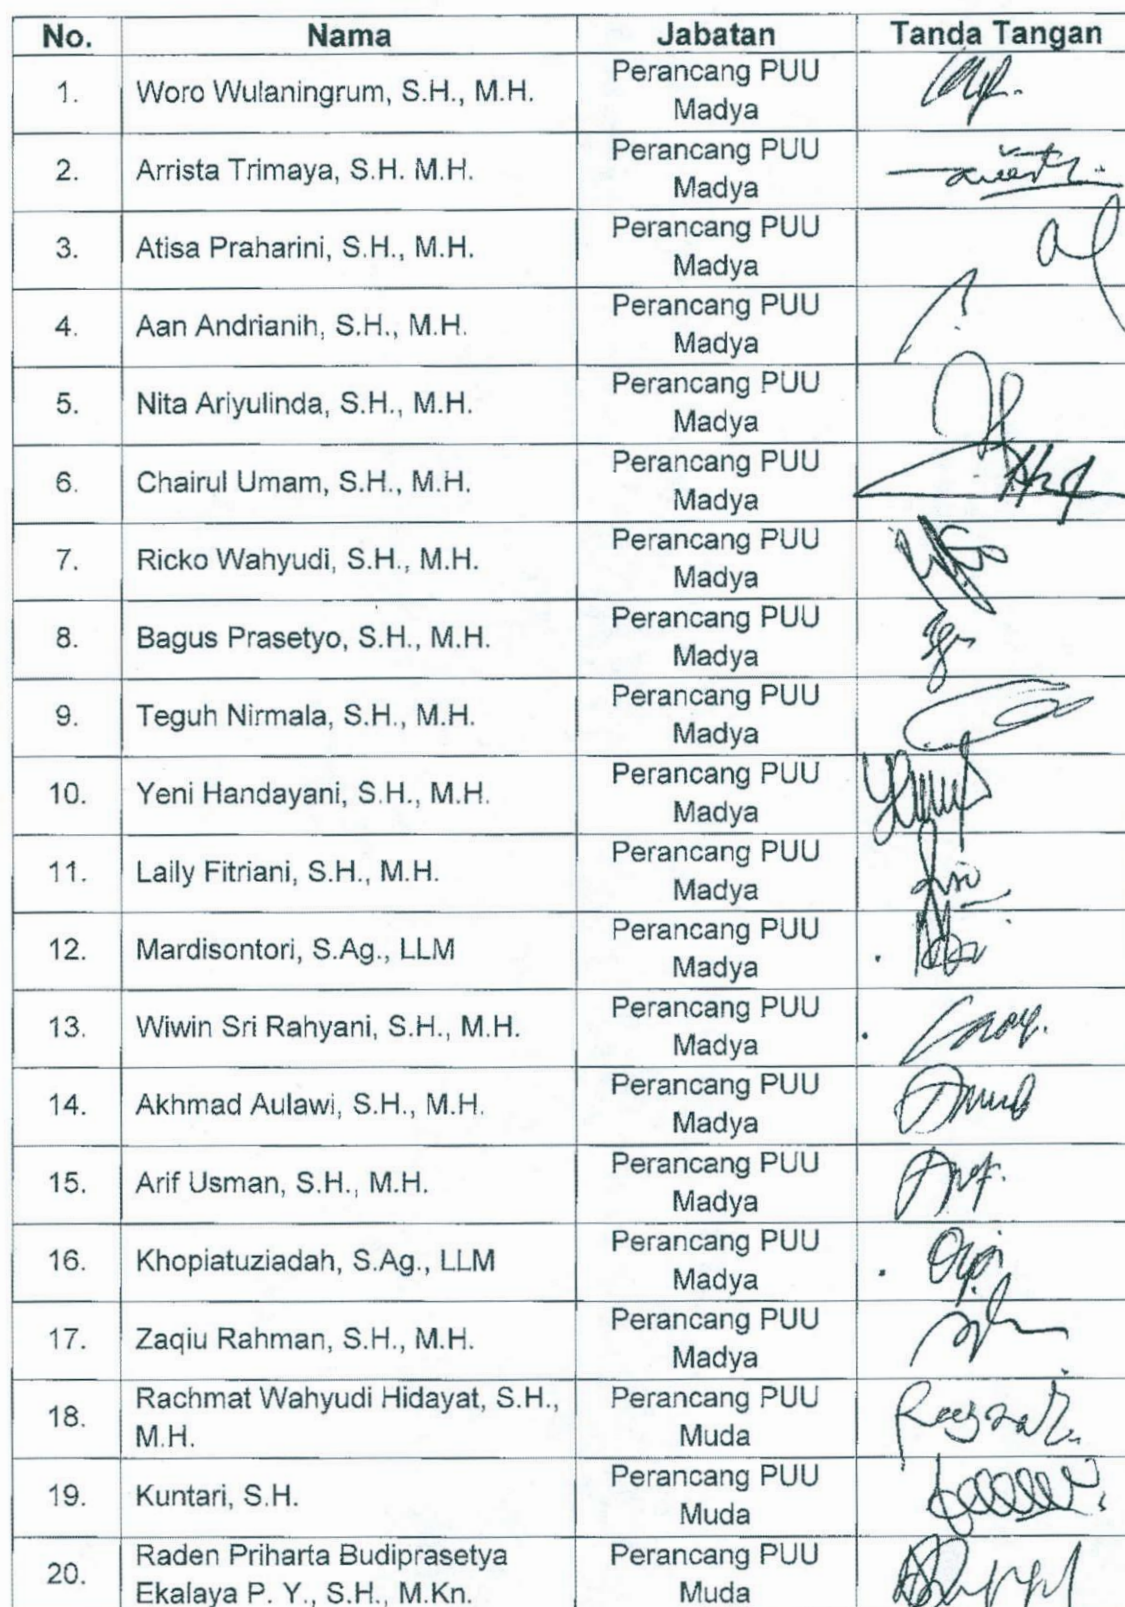 No. Nama Jabatan Tanda Tangan
1. Woro Wulaningrum, S.H., M.H. Perancang PUU
Madya
2. Arrista Trimaya, S.H. M.H. Perancang PUU
Madya
3. Atisa Praharini, S.H., M.H. Perancang PUU
Madya
4. Aan Andrianih, S.H., M.H. Perancang PUU
Madya
5. Nita Ariyulinda, S.H., M.H. Perancang PUU
Madya
6. Chairul Umam, S.H., M.H. Perancang PUU
Madya
7. Ricko Wahyudi, S.H., M.H. Perancang PUU
Madya
8. Bagus Prasetyo, S.H., M.H. Perancang PUU
Madya
9. Teguh Nirmala, S.H., M.H. Perancang PUU
Madya
10. Yeni Handayani, S.H., M.H. Perancang PUU
Madya
11. Laily Fitriani, S.H., M.H. Perancang PUU
Madya
12. Mardisontori, S.Ag., LLM Perancang PUU
Madya
13. Wiwin Sri Rahyani, S.H., M.H. Perancang PUU
Madya
14. Akhmad Aulawi, S.H., M.H. Perancang PUU
Madya
15. Arif Usman, S.H., M.H. Perancang PUU
Madya
16. Khopiatuziadah, S.Ag., LLM Perancang PUU
Madya
17. Zaqiu Rahman, S.H., M.H. Perancang PUU
Madya
18. Rachmat Wahyudi Hidayat, S.H., Perancang PUU
M.H. Muda
19. Kuntari, S.H. Perancang PUU
Muda
20. Raden Priharta Budiprasetya Perancang PUU
Ekalaya P. Y., S.H., M.Kn. Muda